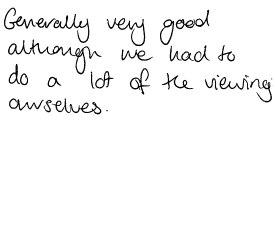 Generally very good
although we had to
do a lot of the viewing
ourselves.